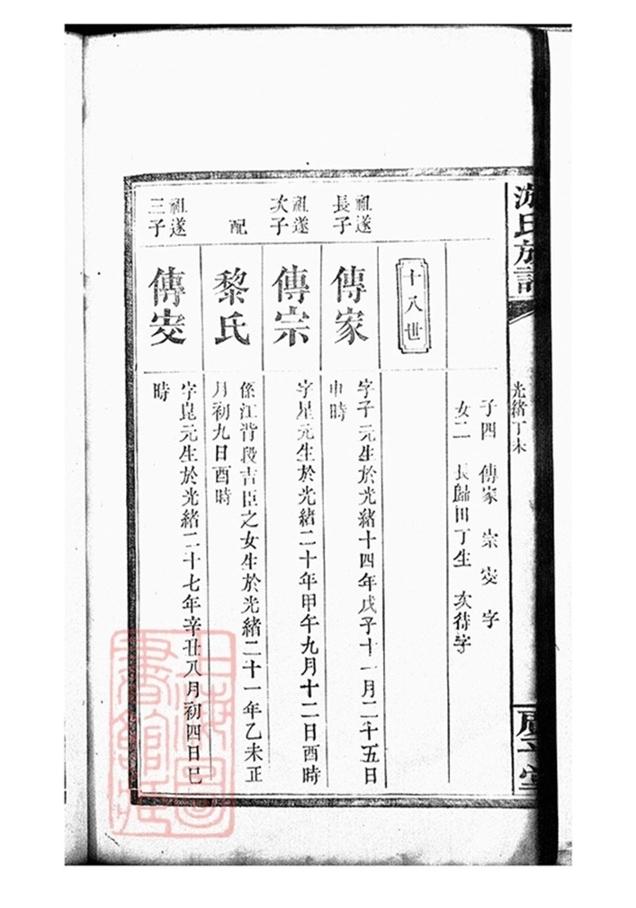 氏族譜
光緒丁未
子四 傳家 宗 字
女二 長歸田丁生 次待字
十八世
祖遂長子
傳家
字子元生於光緒十四年戊子十一月二十五日
申時
祖遂次子
傳宗
字星元生於光緒二十年甲午九月十二日酉時
配
黎氏
係江背段吉臣之女生於光緒二十一年乙未正
月初九日酉時
祖遂三子
傳
字崑元生於光緒二十七年辛丑八月初四日巳
時
上海圖
書館藏